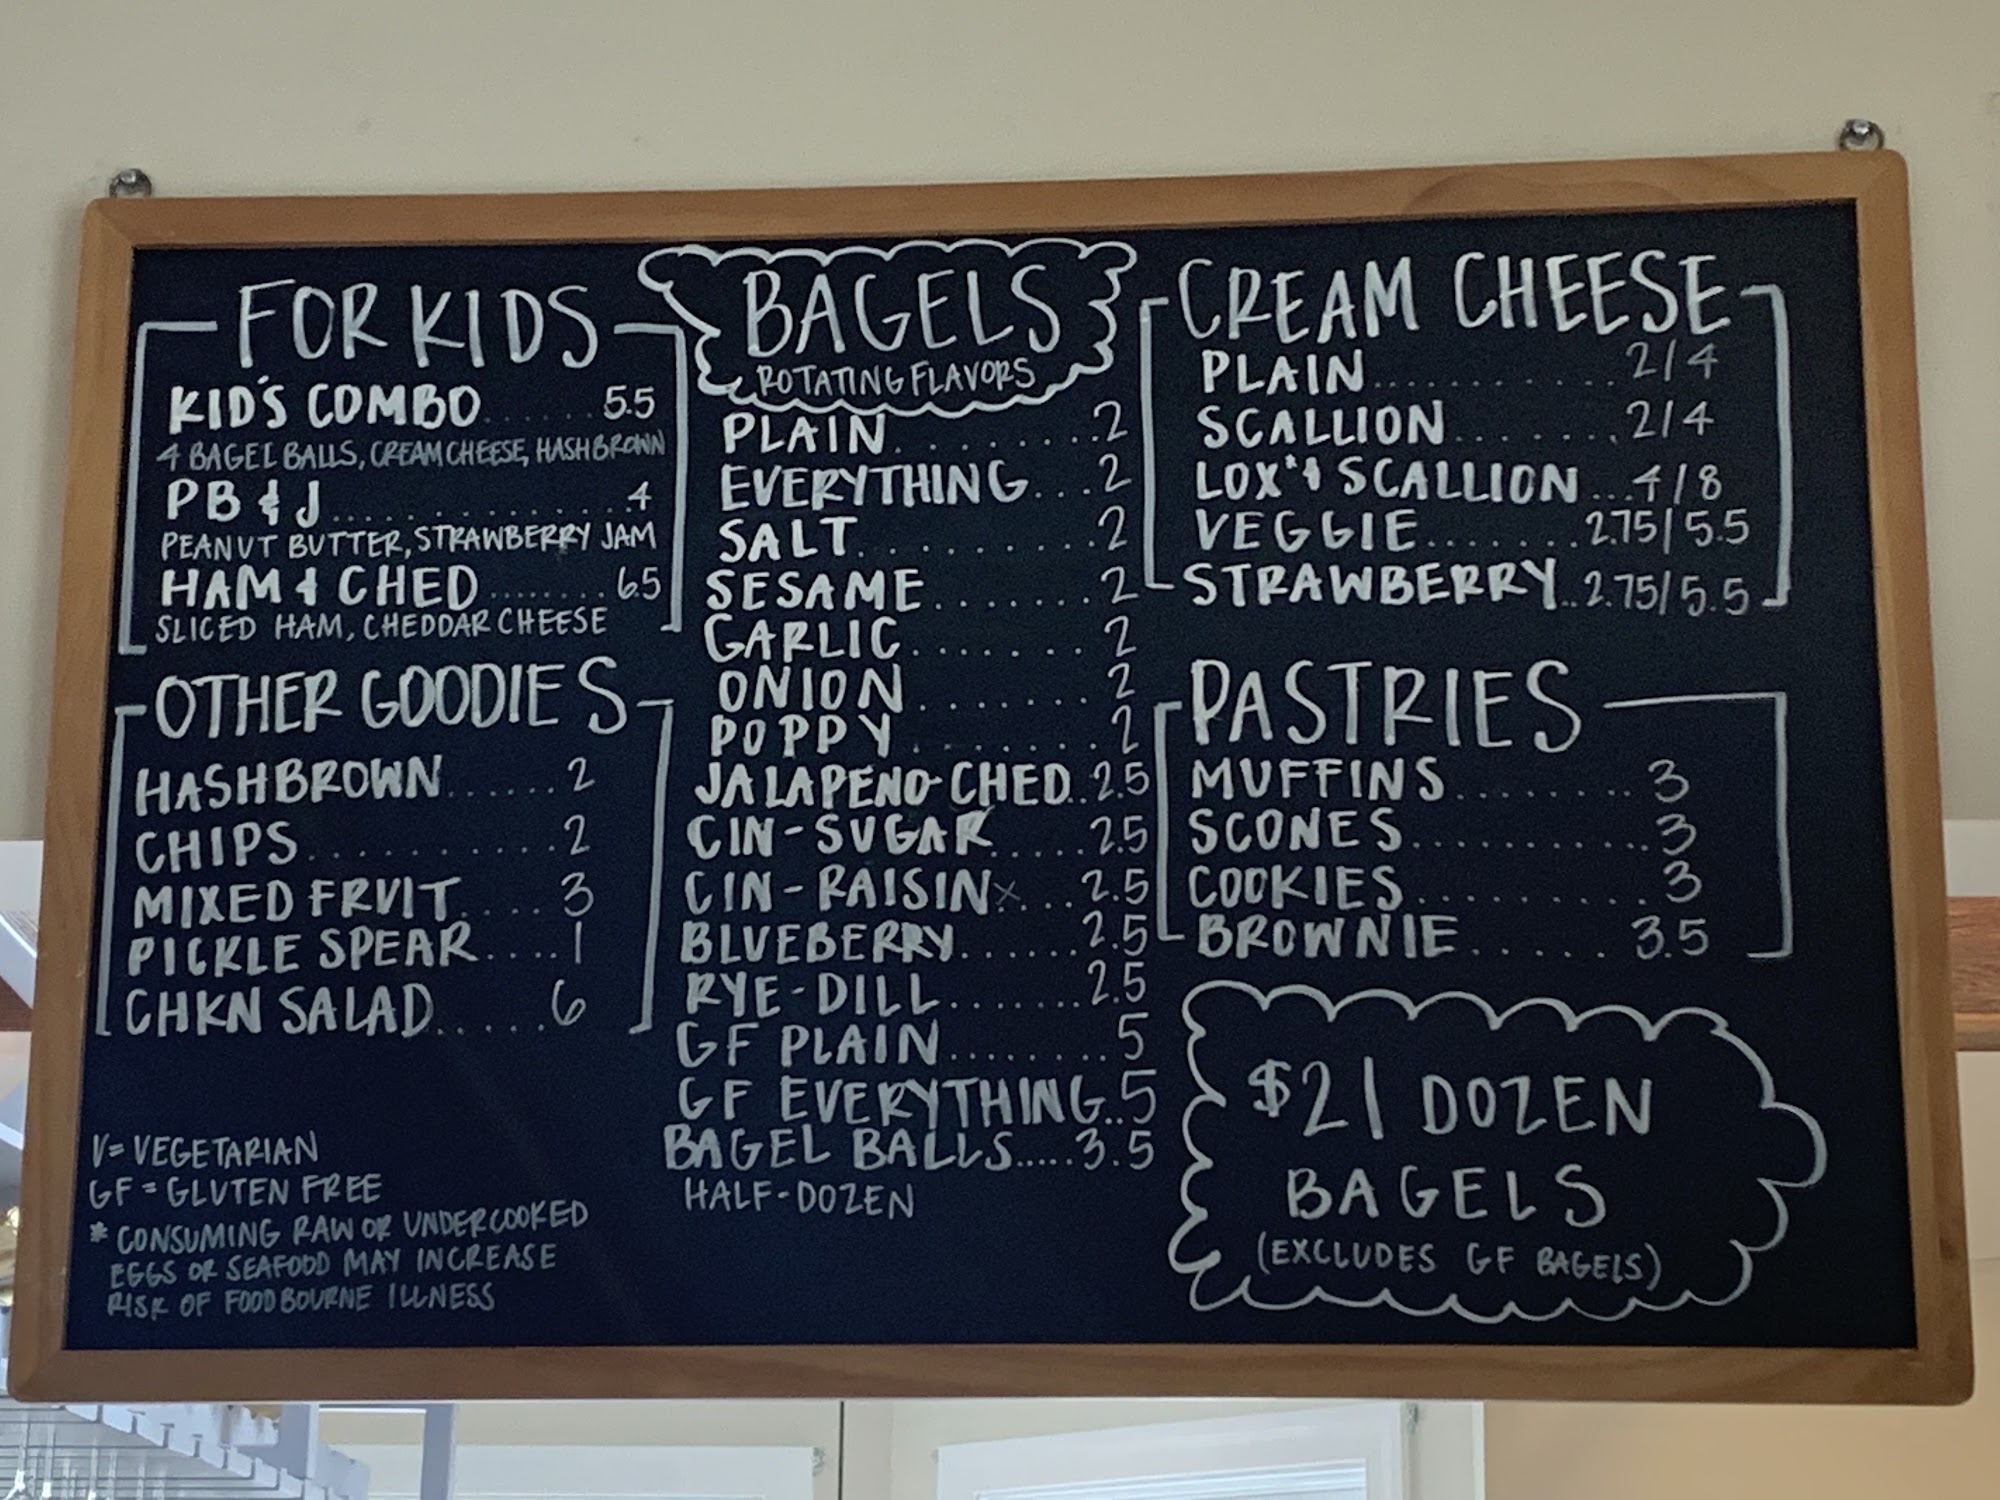 FOR KIDS
KID'S COMBO...... 5.5
4 BAGEL BALLS, CREAM CHEESE, HASHBROWN
PB & J..............4
PEANUT BUTTER, STRAWBERRY JAM
HAM & CHED ........ 6.5
SLICED HAM, CHEDDAR CHEESE
OTHER GOODIES
HASHBROWN...... 2
CHIPS........... 2
MIXED FRUIT..... 3
PICKLE SPEAR.... 1
CHKN SALAD..... 6
V= VEGETARIAN
GF = GLUTEN FREE
* CONSUMING RAW OR UNDERCOOKED
EGGS OR SEAFOOD MAY INCREASE
RISK OF FOODBOURNE ILLNESS
BAGELS
ROTATING FLAVORS
PLAIN.........2
EVERYTHING...2
SALT..........2
SESAME.......2
GARLIC.......2
ONION.......2
POPPY........2
JALAPENO-CHED..2.5
CIN-SUGAR.....2.5
CIN-RAISINx....2.5
BLUEBERRY......2.5
RYE-DILL.......2.5
GF PLAIN........5
GF EVERYTHING..5
BAGEL BALLS.....3.5
HALF-DOZEN
CREAM CHEESE
PLAIN............2/4
SCALLION.......2/4
LOX* & SCALLION...4/8
VEGGIE.......2.75/5.5
STRAWBERRY..2.75/5.5
PASTRIES
MUFFINS........ 3
SCONES...........3
COOKIES..........3
BROWNIE...... 3.5
$21 DOZEN
BAGELS
(EXCLUDES GF BAGELS)